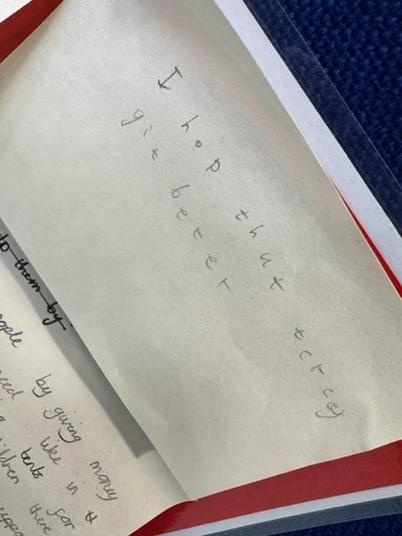 I hop that tercey
git beter
to them by
ople by giving money
need like in
tents for
ildren there
suppo